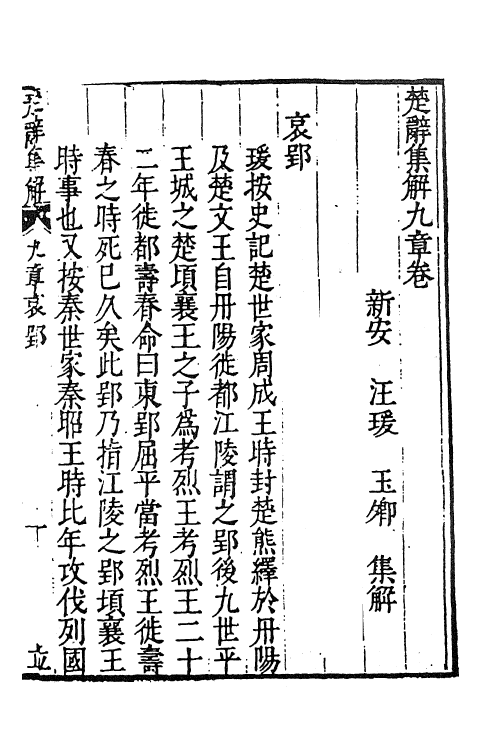 楚辭集解九章卷
新安 汪瑗 玉卿 集解
哀郢
瑗按史記楚世家周成王時封楚熊繹於丹陽
及楚文王自丹陽徙都江陵謂之郢後九世平
王城之楚頃襄王之子為考烈王考烈王二十
二年徙都壽春命曰東郢屈平當考烈王徙壽
春之時死已久矣此郢乃指江陵之郢頃襄王
時事也又按秦世家秦昭王時比年攻伐列國
楚辭集解 九章哀郢